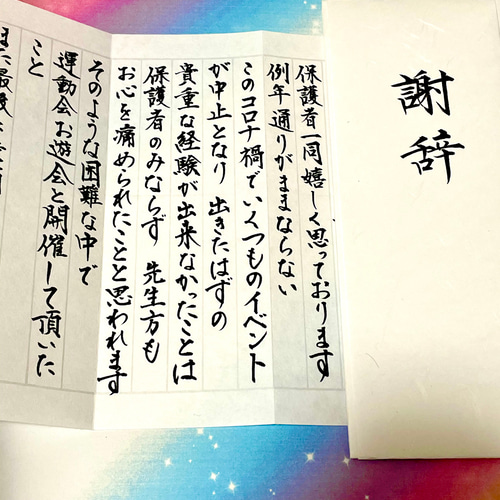 謝辞
保護者一同嬉しく思っております
例年通りがままならない
このコロナ禍でいくつものイベント
が中止となり 出きたはずの
貴重な経験が出来なかったことは
保護者のみならず 先生方も
お心を痛められたことと思われます
そのような困難な中で
運動会 お遊会と開催して頂いた
こと
また最後に